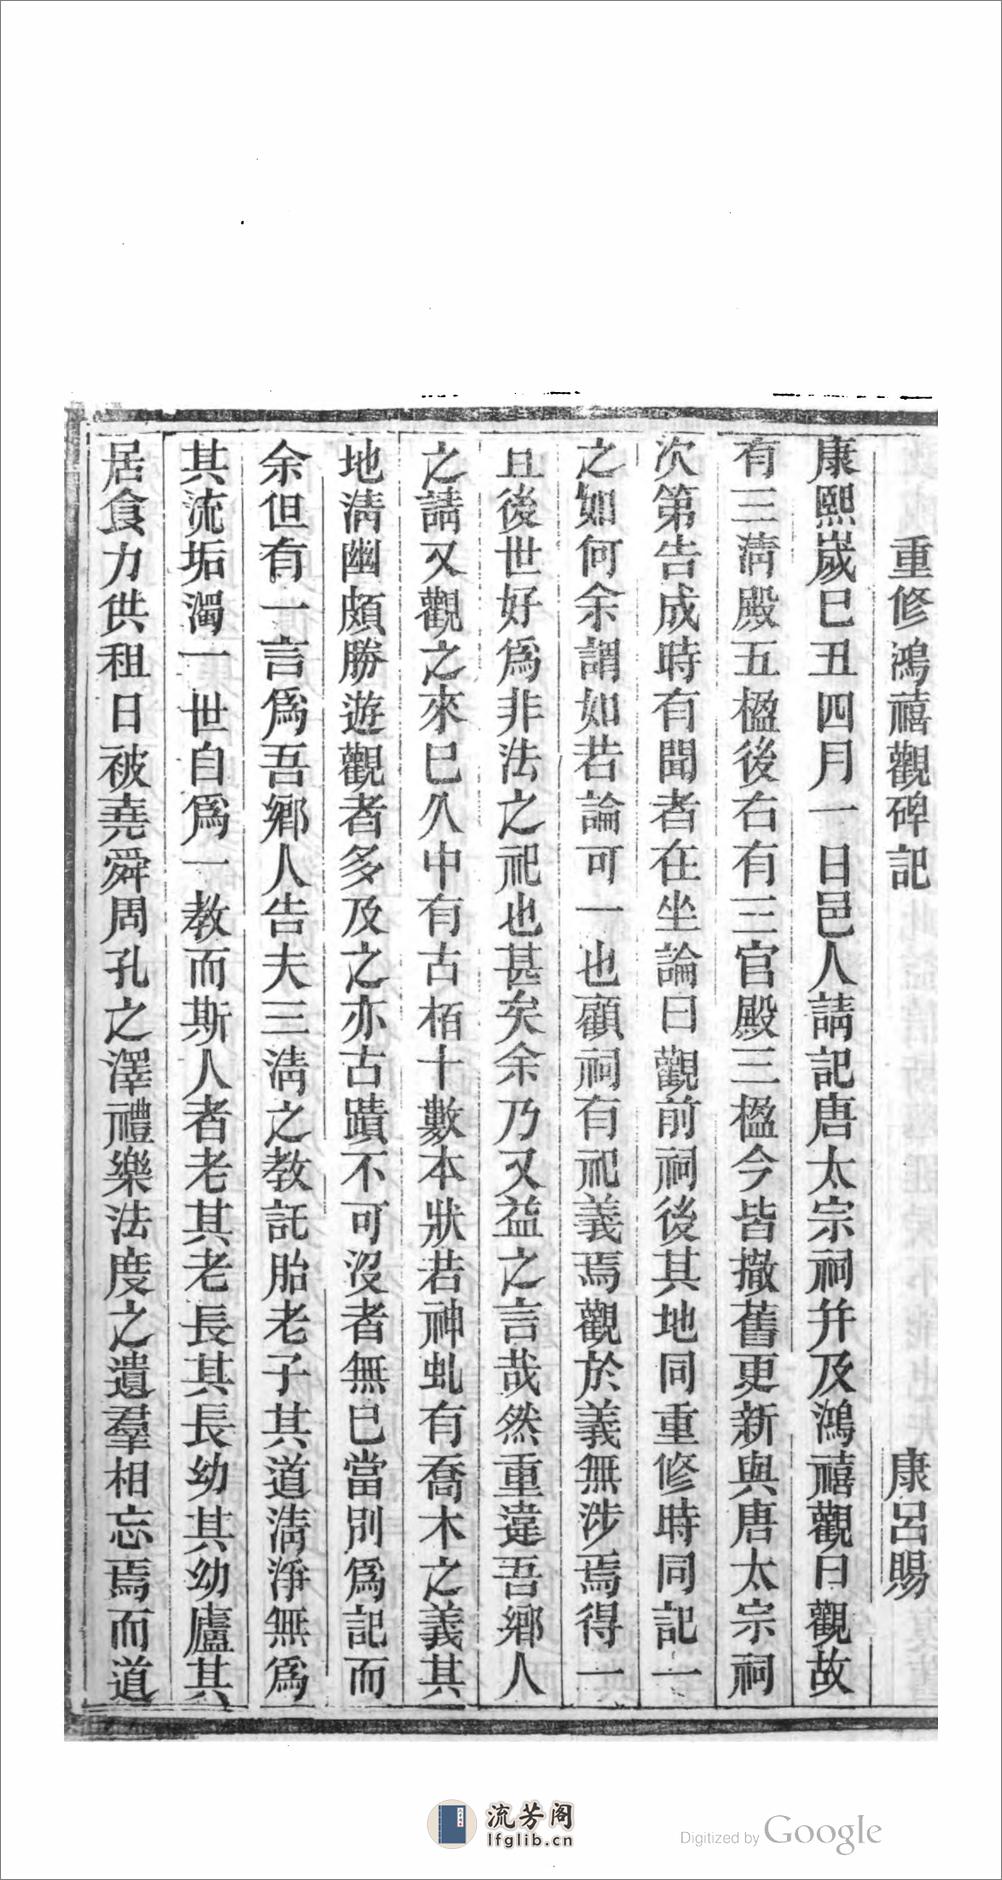 重修鴻禧觀碑記 康呂賜
康熙歲巳丑四月一日邑人請記唐太宗祠幷及鴻禧觀曰觀故
有三淸殿五楹後右有三官殿三楹今皆撤舊更新與唐太宗祠
次第告成時有聞者在坐論曰觀前祠後其地同重修時同記一
之如何余謂如若論可一也顧祠有祀義焉觀於義無涉焉得一
且後世好爲非法之祀也甚矣余乃又益之言哉然重違吾鄉人
之請又觀之來巳久中有古栢十數本狀若神虬有喬木之義其
地淸幽頗勝遊觀者多及之亦古蹟不可沒者無巳當別爲記而
余但有一言爲吾鄉人告夫三淸之教託胎老子其道淸淨無爲
其流垢濁一世自爲一教而斯人者老其老長其長幼其幼廬其
居食力供租日被堯舜周孔之澤禮樂法度之遺羣相忘焉而道
流芳阁
lfglib.cn
Digitized by Google